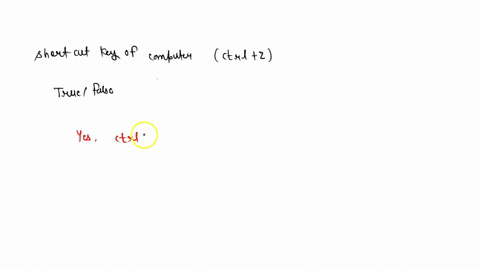 Shortcut key of computer (ctrl+z)
True/False
Yes, ctrl